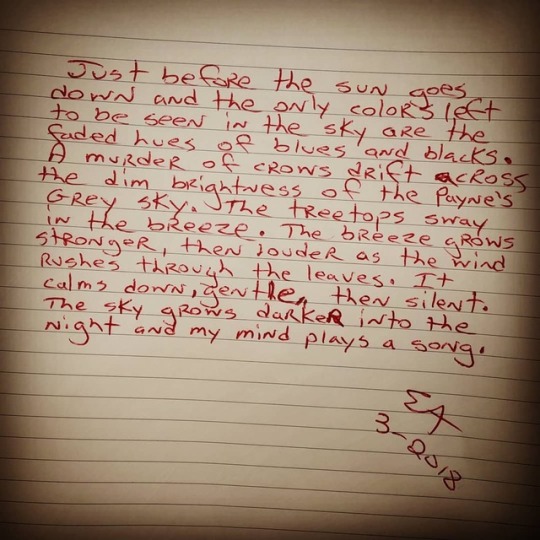 Just before the sun goes
down and the only colors left
to be seen in the sky are the
faded hues of blues and blacks.
A murder of crows drift across
the dim brightness of the Payne's
Grey sky. The treetops sway
in the breeze. The breeze grows
stronger, then louder as the wind
rushes through the leaves. It
calms down, gentle, then silent.
The sky grows darker into the
night and my mind plays a song.
3-2018